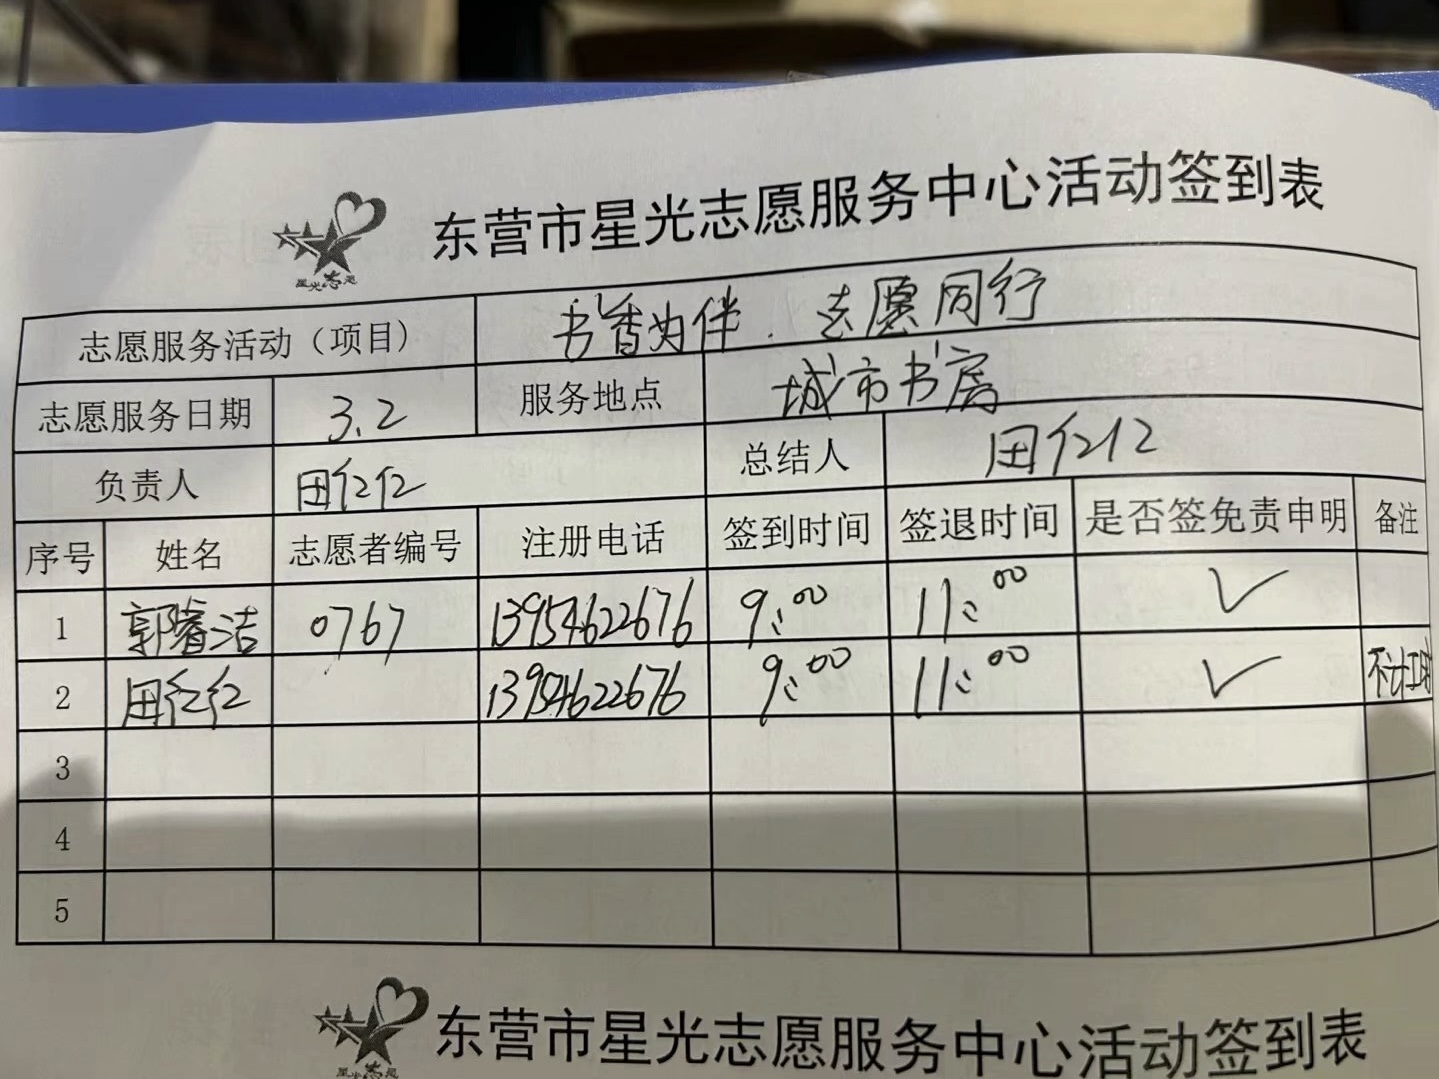 东营市星光志愿服务中心活动签到表
星光志愿
志愿服务活动（项目） 书香为伴．志愿同行
志愿服务日期 3.2 服务地点 城市书房
负责人 田红红 总结人 田红红
序号 姓名 志愿者编号 注册电话 签到时间 签退时间 是否签免责申明 备注
1 郭睿洁 0767 13954622676 9:00 11:00 ✓
2 田红红 13954622676 9:00 11:00 ✓ 不计工时
3
4
5
东营市星光志愿服务中心活动签到表
星光志愿